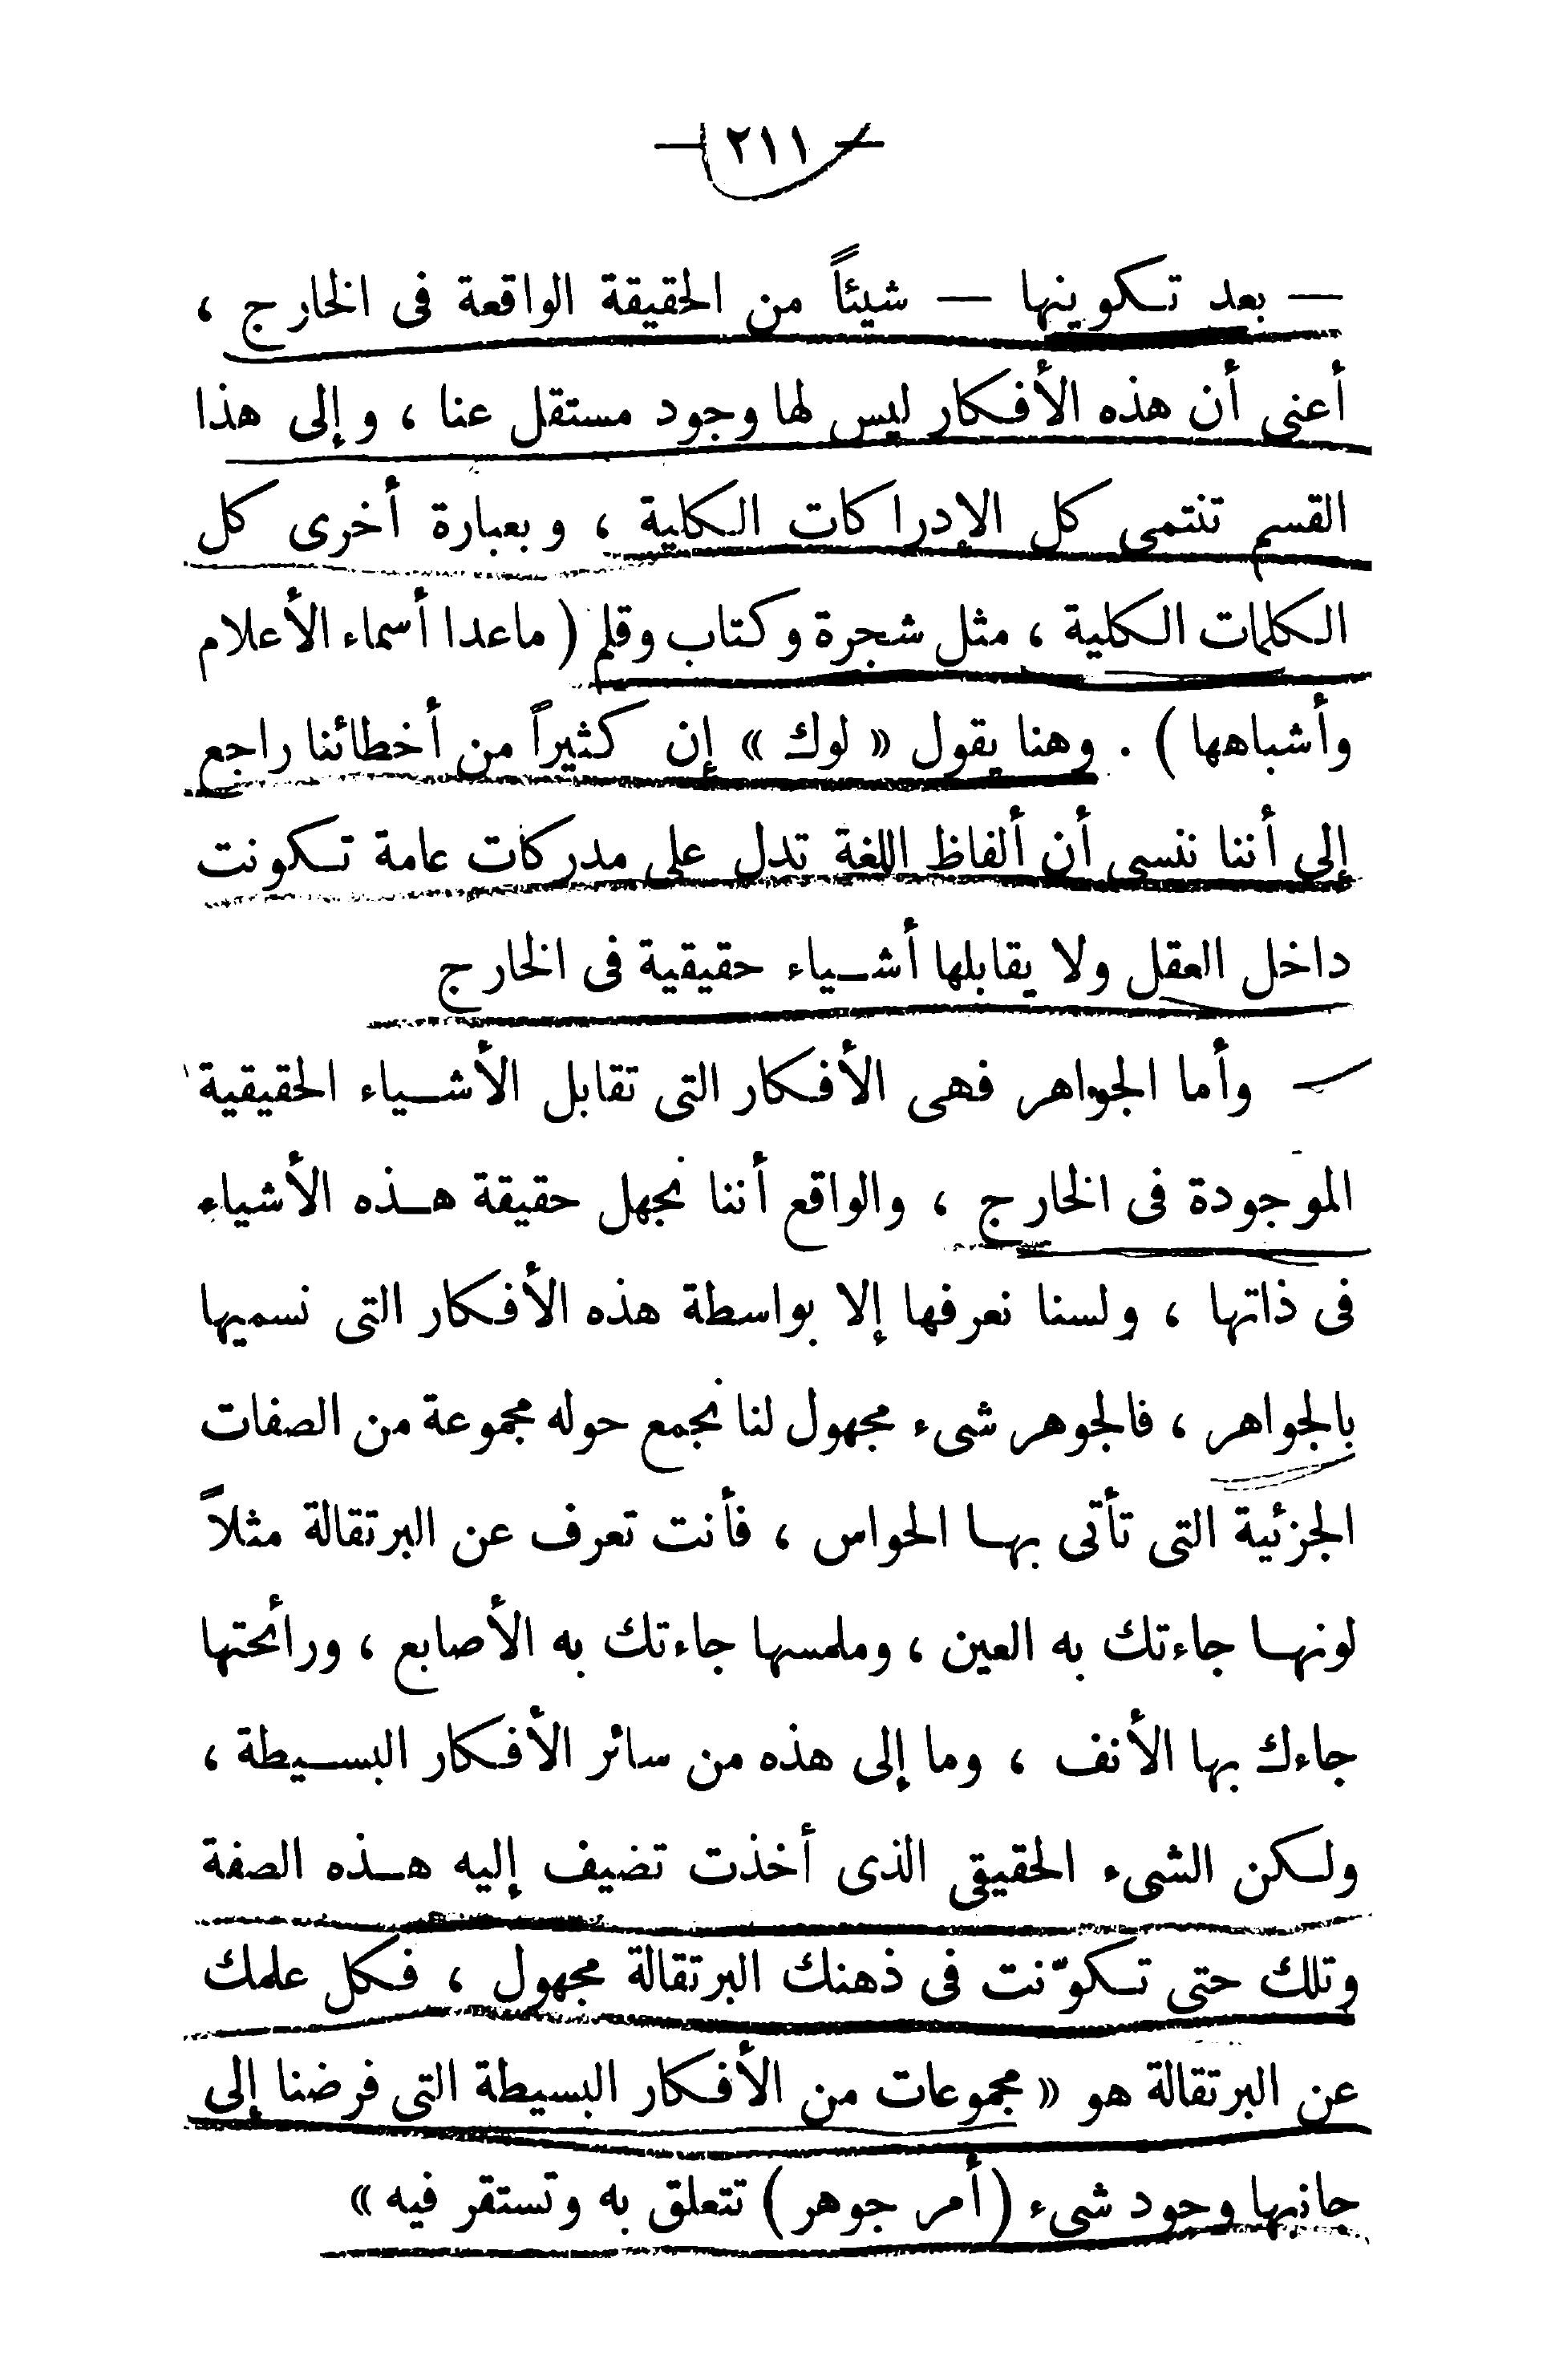 — ٢١١ —
— بعد تكوينها — شيئاً من الحقيقة الواقعة فى الخارج ،
أعنى أن هذه الأفكار ليس لها وجود مستقل عنا ، وإلى هذا
القسم تنتمى كل الإدراكات الكلية ، وبعبارة أخرى كل
الكلمات الكلية ، مثل شجرة وكتاب وقلم ( ماعدا أسماء الأعلام
وأشباهها ) . وهنا يقول « لوك » إن كثيراً من أخطائنا راجع
إلى أننا ننسى أن ألفاظ اللغة تدل على مدركات عامة تكونت
داخل العقل ولا يقابلها أشياء حقيقية فى الخارج
وأما الجواهر فهى الأفكار التى تقابل الأشياء الحقيقية
الموجودة فى الخارج ، والواقع أننا نجهل حقيقة هذه الأشياء
فى ذاتها ، ولسنا نعرفها إلا بواسطة هذه الأفكار التى نسميها
بالجواهر ، فالجوهر شىء مجهول لنا نجمع حوله مجموعة من الصفات
الجزئية التى تأتى بها الحواس ، فأنت تعرف عن البرتقالة مثلاً
لونها جاءتك به العين ، وملمسها جاءتك به الأصابع ، ورائحتها
جاءك بها الأنف ، وما إلى هذه من سائر الأفكار البسيطة ،
ولكن الشىء الحقيقى الذى أخذت تضيف إليه هذه الصفة
وتلك حتى تكوّنت فى ذهنك البرتقالة مجهول ، فكل علمك
عن البرتقالة هو « مجموعات من الأفكار البسيطة التى فرضنا إلى
جانبها وجود شىء ( أمر جوهر ) تتعلق به وتستقر فيه »